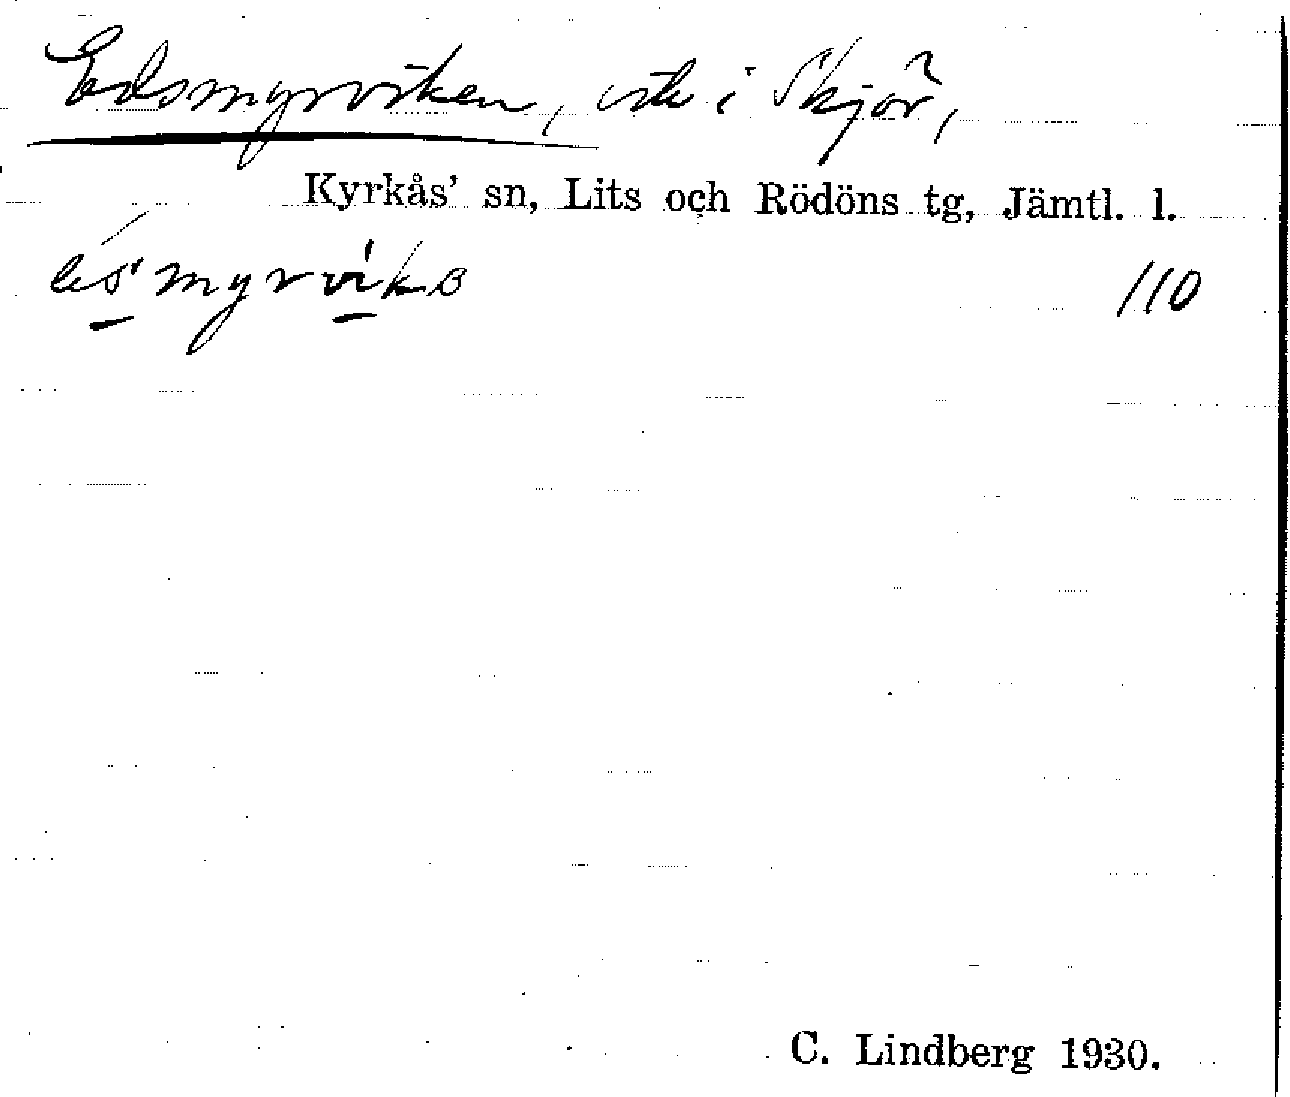 Edsmyrviken, vik i Skjör,
Kyrkås' sn, Lits och Rödöns tg, Jämtl. l.
110
C. Lindberg 1930.